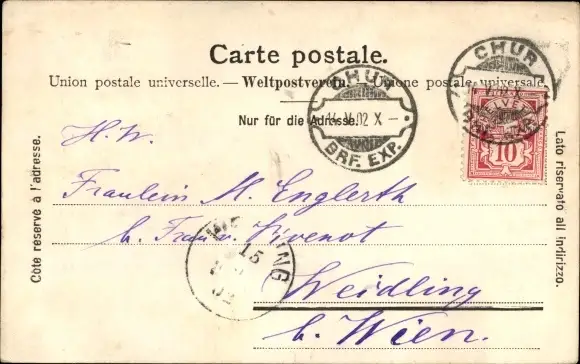 Carte postale.
Union postale universelle. — Weltpostverein. — Unione postale universale
Nur für die Adresse.
CHUR
14. V. 02 X –
BRF. EXP.
CHUR
10
H. W.
Fräulein M. Englerth
b. Frau v. Vivenot
Weidling
b. Wien.
15
02
Côte réservé à l'adresse.
Lato riservato all indirizzo.